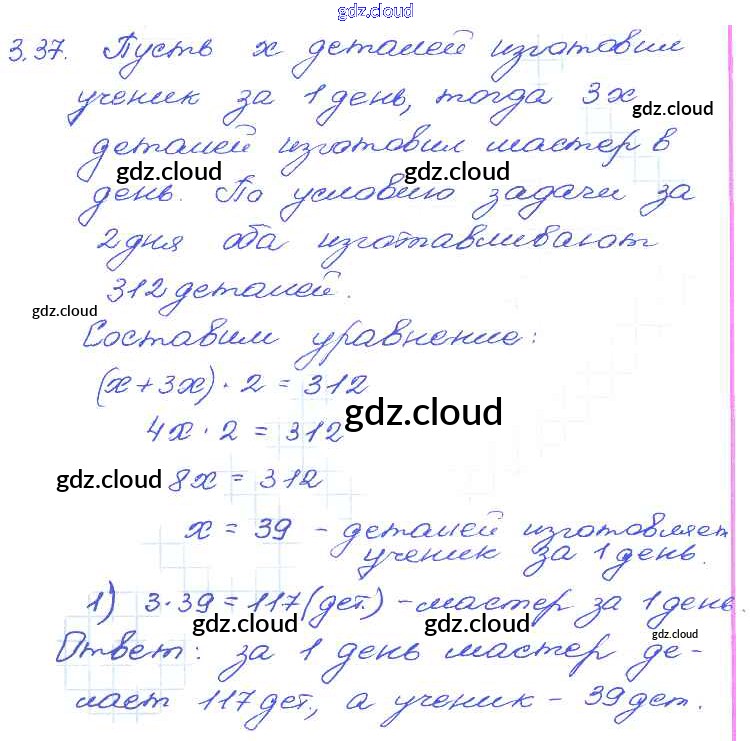 gdz.cloud
3.37. Пусть x деталей изготовил
ученик за 1 день, тогда 3x
gdz.cloud
деталей изготовил мастер в
gdz.cloud gdz.cloud
день. По условию задачи за
2 дня оба изготавливают
312 деталей.
gdz.cloud
Составим уравнение:
(x + 3x) · 2 = 312
gdz.cloud
4x · 2 = 312
gdz.cloud
8x = 312
x = 39 - деталей изготовляет
ученик за 1 день.
1) 3·39 = 117 (дет.) - мастер за 1 день.
gdz.cloud gdz.cloud gdz.cloud
Ответ: за 1 день мастер де-
лает 117 дет., а ученик - 39 дет.